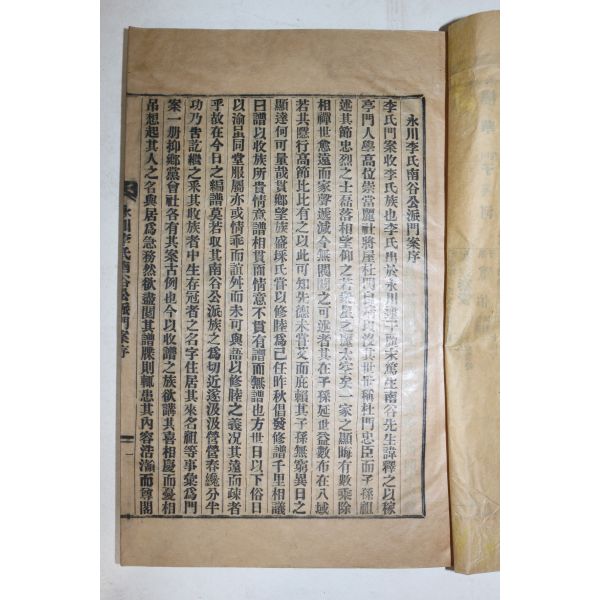 永川李氏南谷公派門案序
李氏門案收李氏族也李氏出於永川逮于麗末篤生南谷先生諱釋之以稼
亭門人學高位崇當麗社將屋杜門自靖以沒其世世稱杜門忠臣而子孫祖
述其節忠烈之士磊落相望仰之若衆星之麗太空矣一家之顯晦有數乘除
相禪世愈遠而家聲遞減今無閥閱之可述者其在子孫延世益數布在八域
若其懿行高節比比有之以此可知先德未嘗艾而庇賴其子孫無窮異日之
顯達何可量哉貫鄉望族盛埰氏嘗以修睦爲己任昨秋倡發修譜千里相議
曰譜以收族所貴情意譜相貫而情意不貫有譜而無譜也方世日以下俗日
以渝虽同堂服屬亦或情乖而誼舛而未可與語以修睦之義况其遠而疎者
乎故在今日之編譜莫若取其南谷公派族之爲切近遂汲汲營營春纔分半
功乃告訖繼之采其收族者中生存冠者之名字住居其來名祖等事彙爲門
案一册抑鄉黨會社各有其案古例也今以收譜之族欲講其喜相慶而憂相
吊想起其人之名與居爲急務然欲盡閱其譜牒則輒患其內容浩瀚而尊閣
永川李氏南谷公派門案序
一